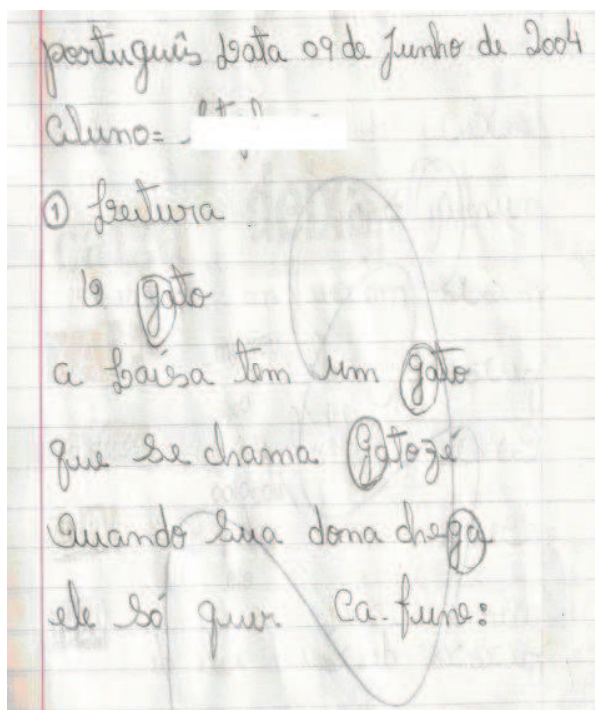 português Data 09 de Junho de 2004
Aluno=
① Leitura
O gato
a Laisa tem um gato
que se chama Gatozé
Quando sua dona chega
ele só quer. Ca-fune: